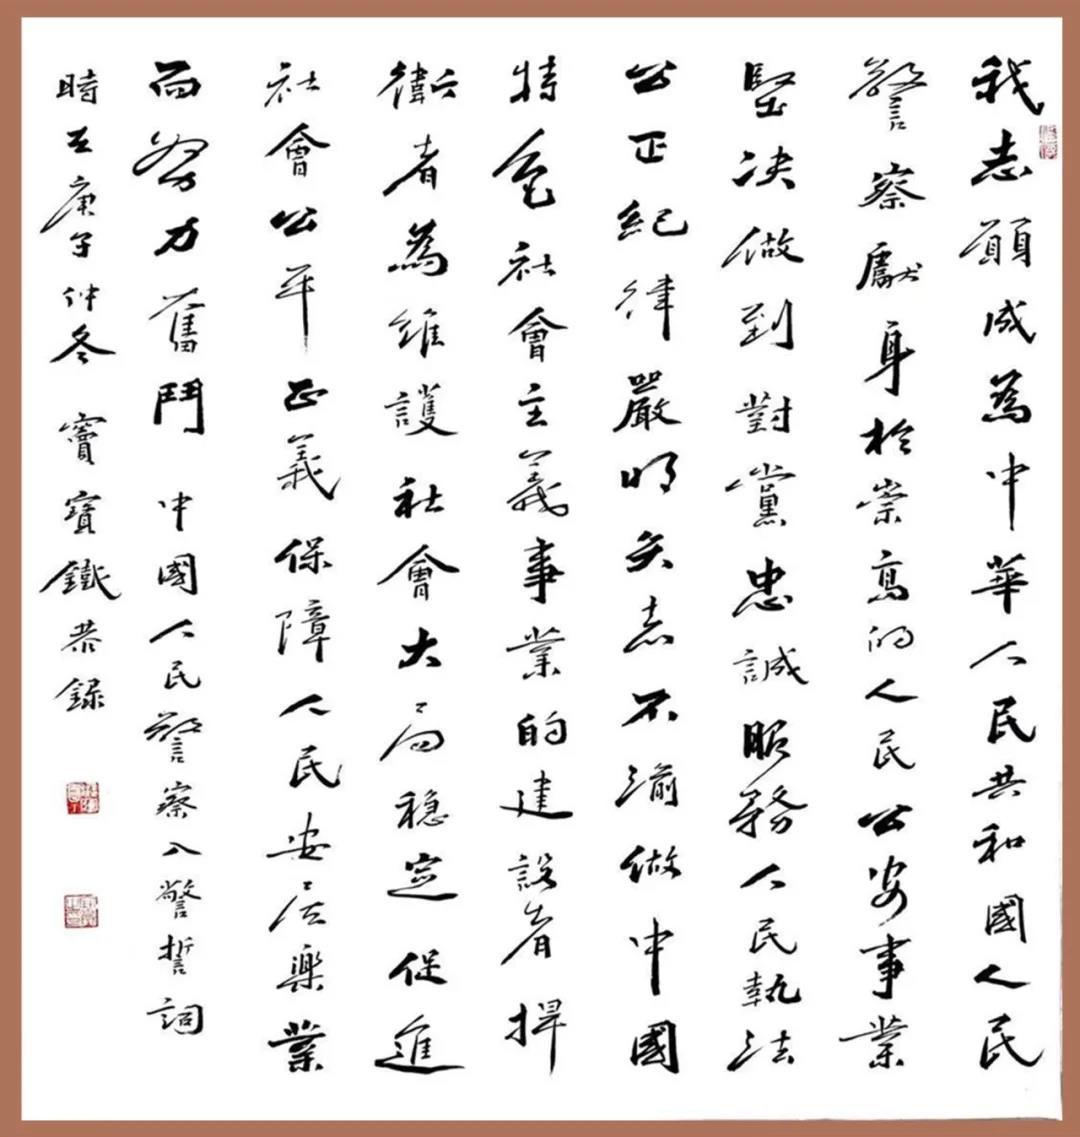 我志願成為中華人民共和國人民
警察獻身於崇高的人民公安事業
堅決做到對黨忠誠服務人民執法
公正紀律嚴明矢志不渝做中國
特色社會主義事業的建設者捍
衛者為維護社會大局穩定促進
社會公平正義保障人民安居樂業
而努力奮鬥 中國人民警察入警誓詞
時在庚子仲冬 竇寶鐵恭錄